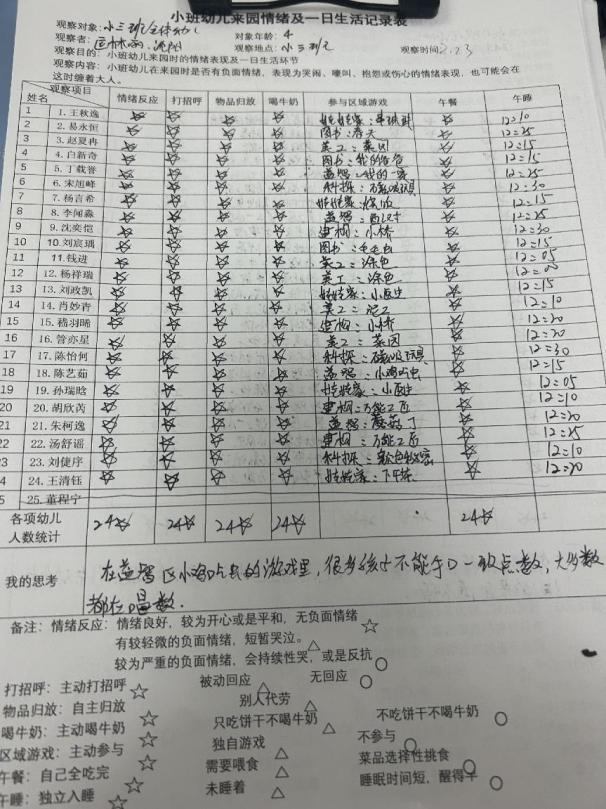 小班幼儿来园情绪及一日生活记录表
观察对象:小三班全体幼儿 对象年龄:4
观察者: 观察地点:小三班 观察时间:2.23
观察目的:小班幼儿来园时的情绪表现及一日生活环节
观察内容:小班幼儿在来园时是否有负面情绪,表现为哭闹、嚎叫、抱怨或伤心的情绪表现,也可能会在
这时缠着大人。
观察项目 姓名 情绪反应 打招呼 物品归放 喝牛奶 参与区域游戏 午餐 午睡
1 1.王秋逸 ☆ ☆ ☆ ☆ 娃娃家: ☆ 12:10
2 2.易永恒 ☆ ☆ ☆ ☆ 图书:春天 ☆ 12:25
3 3.赵夏冉 ☆ ☆ ☆ ☆ 美工:菜园 ☆ 12:15
4 4.白新奇 ☆ ☆ ☆ ☆ 图书:我的爸爸 ☆ 12:15
5 5.丁载誉 ☆ ☆ ☆ ☆ 益智:我的一家 ☆ 12:25
6 6.宋旭峰 ☆ ☆ ☆ ☆ 科探:磁吸玩具 ☆ 12:30
7 7.杨言希 ☆ ☆ ☆ ☆ 娃娃家:做饭 ☆ 12:15
8 8.李闻淼 ☆ ☆ ☆ ☆ 益智: ☆ 12:25
9 9.沈奕恺 ☆ ☆ ☆ ☆ 建构:小桥 ☆ 12:30
10 10.刘宸瑀 ☆ ☆ ☆ ☆ 图书: ☆ 12:15
11 11.钱进 ☆ ☆ ☆ ☆ 美工:涂色 ☆ 12:05
12 12.杨祥瑞 ☆ ☆ ☆ ☆ 美工:涂色 ☆ 12:00
13 13.刘政凯 ☆ ☆ ☆ ☆ 娃娃家:小医生 ☆ 12:15
14 14.肖妙香 ☆ ☆ ☆ ☆ 美工:泥工 ☆ 12:10
15 15.嵇羽晞 ☆ ☆ ☆ ☆ 建构:小桥 ☆ 12:20
16 16.管亦星 ☆ ☆ ☆ ☆ 美工:菜园 ☆ 12:20
17 17.陈怡何 ☆ ☆ ☆ ☆ 科探:磁吸玩具 ☆ 12:30
18 18.陈艺茹 ☆ ☆ ☆ ☆ 益智:小鸡吃虫 ☆ 12:15
19 19.孙瑞晗 ☆ ☆ ☆ ☆ 娃娃家:小医生 ☆ 12:05
20 20.胡欣芮 ☆ ☆ ☆ ☆ 建构:万能工匠 ☆ 12:10
21 21.朱柯逸 ☆ ☆ ☆ ☆ 益智:蘑菇丁 ☆ 12:20
22 22.汤舒谣 ☆ ☆ ☆ ☆ 建构:万能工匠 ☆ 12:25
23 23.刘倢序 ☆ ☆ ☆ ☆ 科探: ☆ 12:10
24 24.王清钰 ☆ ☆ ☆ ☆ 娃娃家:下午茶 ☆ 12:20
5 25.董程宁
各项幼儿人数统计 24☆ 24☆ 24☆ 24☆ 24☆
我的思考 在益智区小鸡吃虫的游戏里,很多孩子不能手口一致点数,大多数
都在唱数.
备注:情绪反应:情绪良好,较为开心或是平和,无负面情绪☆
有较轻微的负面情绪,短暂哭泣。△
较为严重的负面情绪,会持续性哭,或是反抗○
打招呼:主动打招呼☆ 被动回应△ 无回应○
物品归放:自主归放☆ 别人代劳△
喝牛奶:主动喝牛奶☆ 只吃饼干不喝牛奶△ 不吃饼干不喝牛奶○
区域游戏:主动参与☆ 独自游戏△ 不参与○
午餐:自己全吃完☆ 需要喂食△ 菜品选择性挑食○
午睡:独立入睡☆ 未睡着△ 睡眠时间短,醒得早○